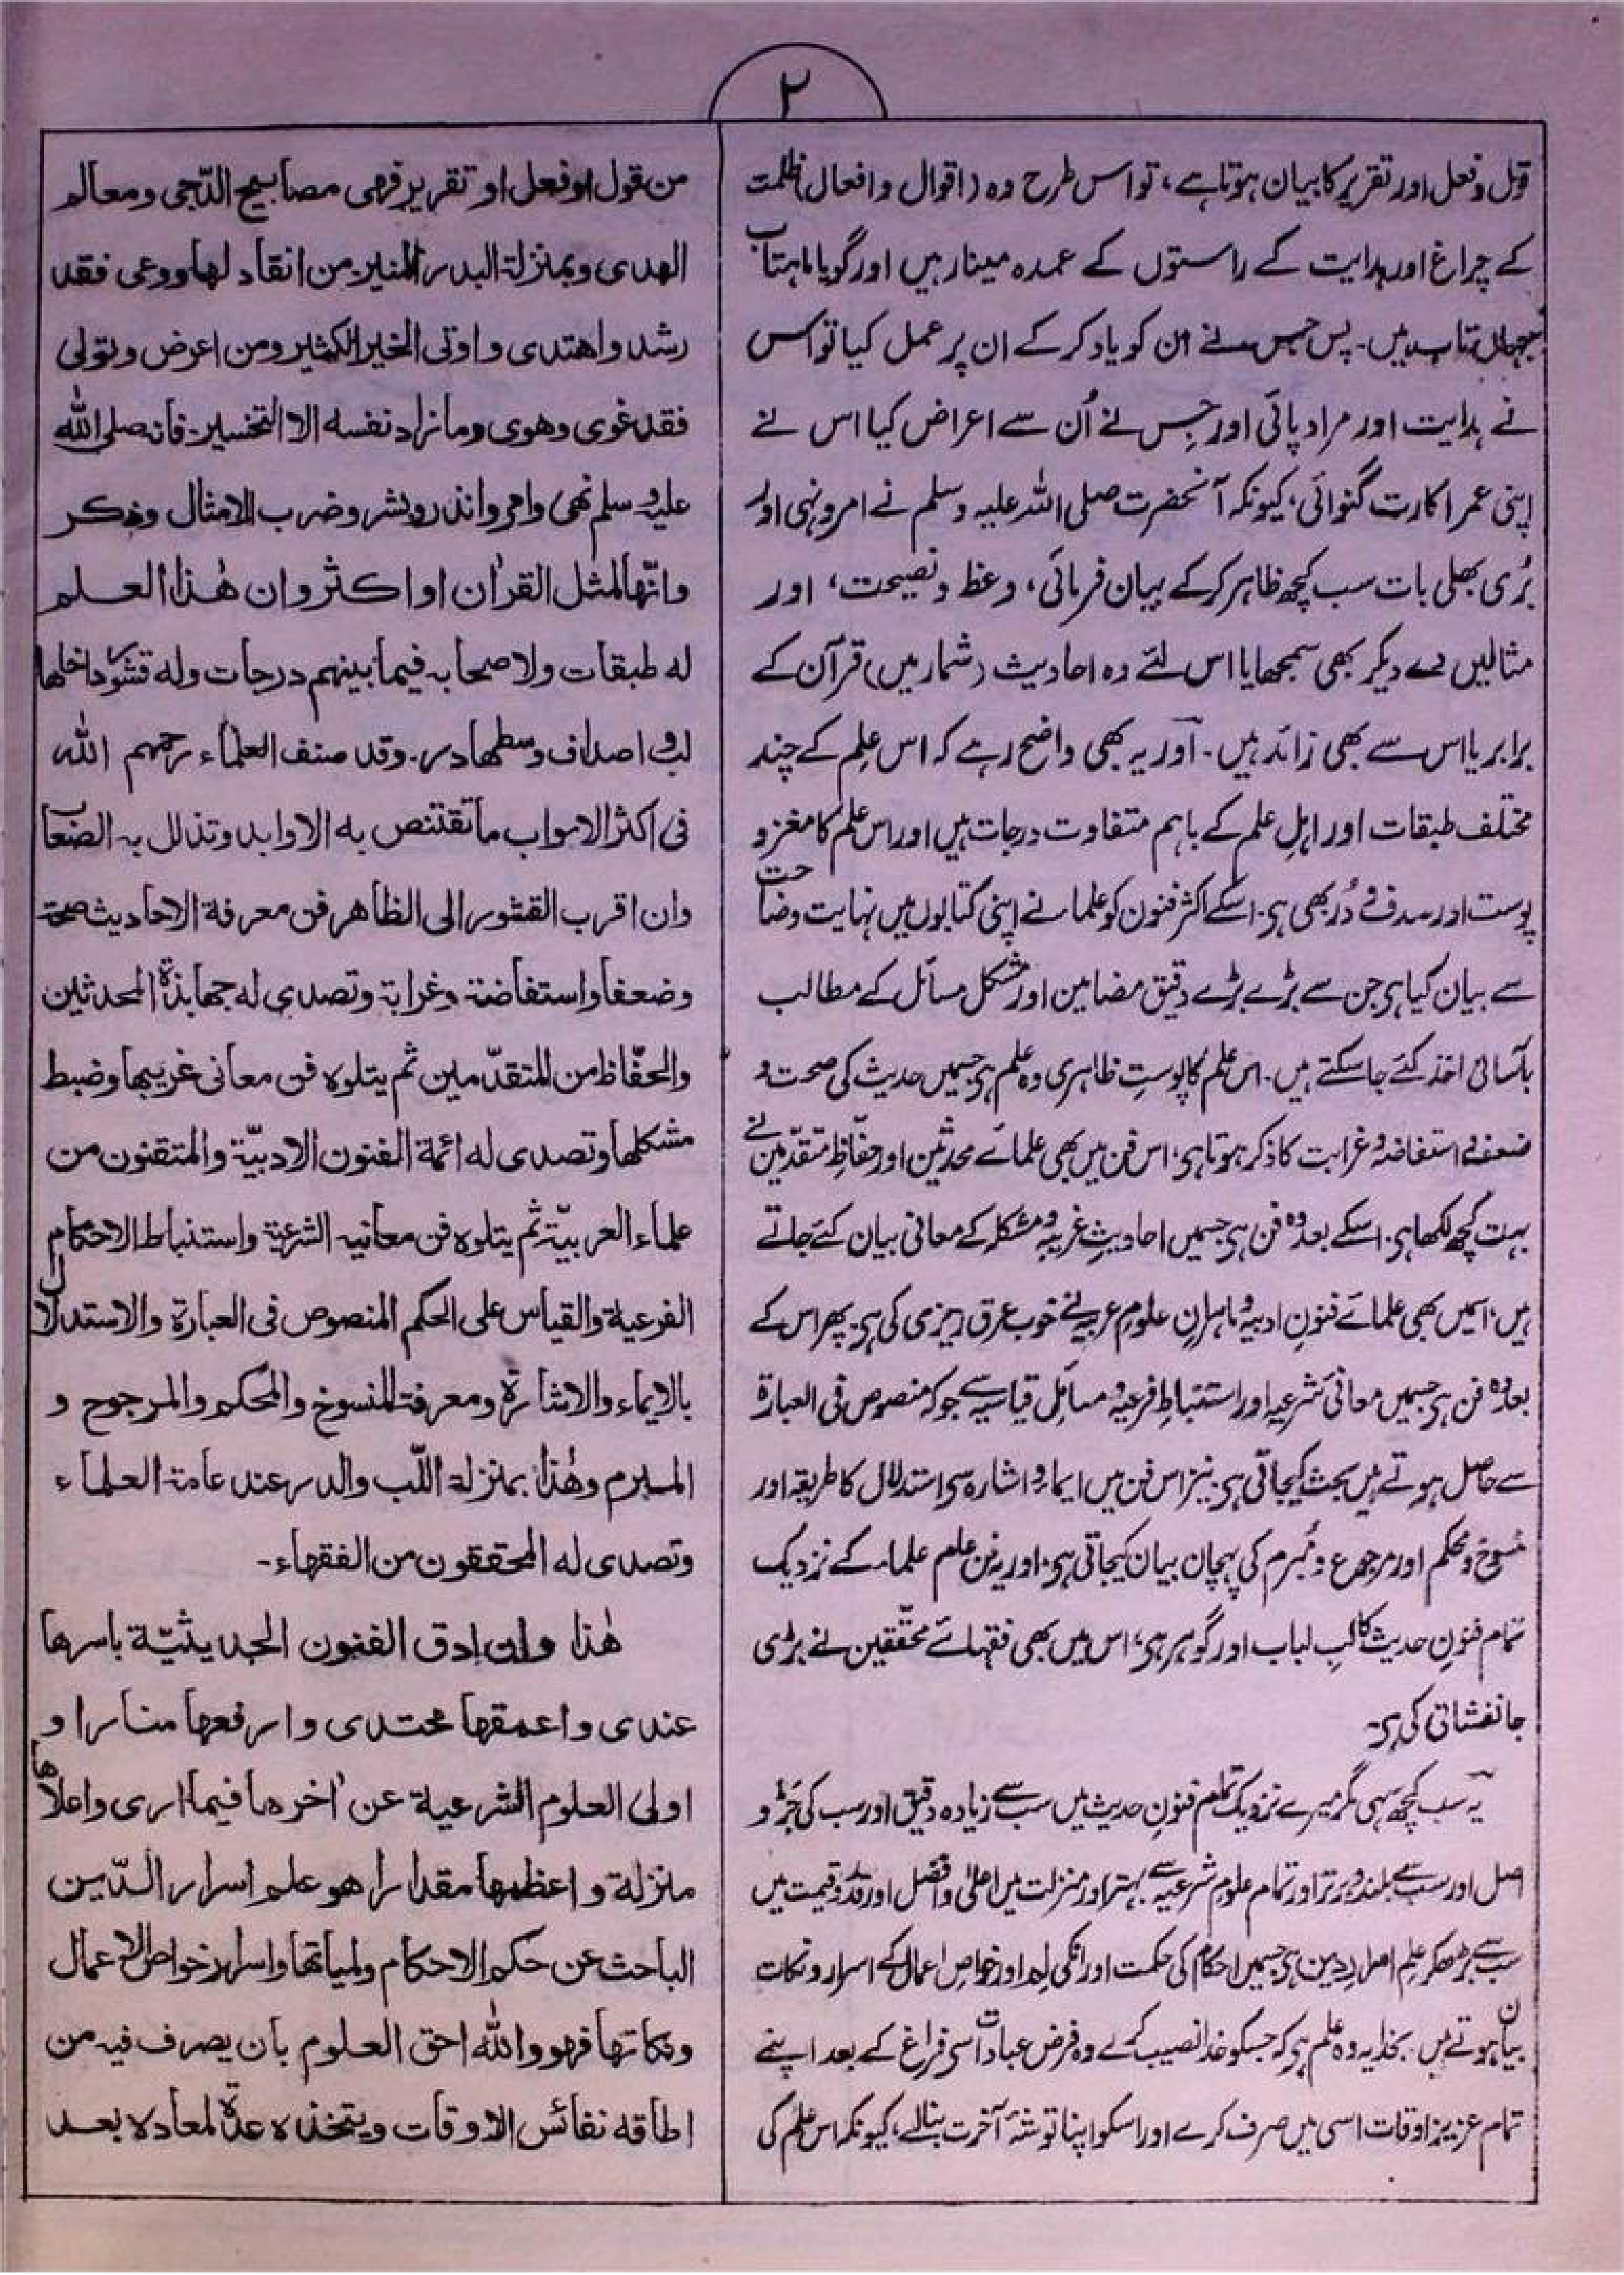 ۲
قول و فعل اور تقریر کا بیان ہوتا ہے، تو اس طرح وہ (اقوال و افعال) ظلمت
کے چراغ اور ہدایت کے راستوں کے عمدہ مینار ہیں اور گویا ماہتاب
جہاں تتاب ہیں۔ پس جس نے ان کو یاد کرکے ان پر عمل کیا تو اس
نے ہدایت اور مراد پائی اور جس نے اُن سے اعراض کیا اس نے
اپنی عمر اکارت گنوائی؛ کیونکہ آنحضرت صلی اللہ علیہ وسلم نے امر و نہی اور
بُری بھلی بات سب کچھ ظاہر کرکے بیان فرمائی، وعظ و نصیحت، اور
مثالیں دے دیکر بھی سمجھایا اس لئے وہ احادیث (شمار میں) قرآن کے
برابر یا اس سے بھی زائد ہیں۔ اور یہ بھی واضح رہے کہ اس علم کے چند
مختلف طبقات اور اہلِ علم کے باہم متفاوت درجات ہیں اور اس علم کا مغز و
پوست اور صدف و دُر بھی ہی۔ اسکے اکثر فنون کو علما نے اپنی کتابوں میں نہایت وضاحت
سے بیان کیا ہی جن سے بڑے بڑے دقیق مضامین اور مشکل مسائل کے مطالب
بآسانی اخذ کئے جا سکتے ہیں۔ اس علم کا پوستِ ظاہری وہ علم ہی جسمیں حدیث کی صحت و
ضعف و استفاضہ و غرابت کا ذکر ہوتا ہی؛ اس فن میں بھی علمائے محدثین اور حفّاظِ متقدّمین نے
بہت کچھ لکھا ہی۔ اسکے بعد وہ فن ہی جسمیں احادیثِ غریبہ و مشکلہ کے معانی بیان کئے جاتے
ہیں؛ اسمیں بھی علمائے فنونِ ادبیہ و ماہرانِ علومِ عربیہ نے خوب عرق ریزی کی ہی۔ پھر اس کے
بعد وہ فن ہی جسمیں معانیٔ شرعیہ اور استنباطِ فرعیہ و مسائلِ قیاسیہ سے جو کہ منصوص فی العبارۃ
سے حاصل ہوتے ہیں بحث کیجاتی ہی۔ نیز اس فن میں ایما و اشارہ سی استدلال کا طریقہ اور
منسوخ و محکم اور مرجوع و مُبرم کی پہچان بیان کیجاتی ہی۔ اور یہ فن عام علماء کے نزدیک
تمام فنونِ حدیث کا لبِ لباب اور گوہر ہی؛ اس میں بھی فقہائے محقّقین نے بڑی
جانفشانی کی ہی۔
یہ سب کچھ سہی مگر میرے نزدیک تمام فنونِ حدیث میں سب سے زیادہ دقیق اور سب کی جَڑ و
اصل اور سب سے بلند و برتر اور تمام علومِ شرعیہ سے بہتر اور منزلت میں اعلیٰ و افضل اور قدر و قیمت میں
سب سے بڑھکر علمِ اسرارِ دین ہی جسمیں احکام کی حکمت اور انکی لِم اور خواصِ اعمال کے اسرار و نکات
بیان ہوتے ہیں۔ بخدا یہ وہ علم ہی کہ جسکو خدا نصیب کرے وہ فرض عبادات سی فراغ کے بعد اپنے
تمام عزیز اوقات اسی میں صرف کرے اور اسکو اپنا توشۂ آخرت بنالے، کیونکہ اس علم کی
من قول او فعل او تقریر فہی مصابیح الدّجی و معالم
الھدی وبمنزلۃ البدر المنیر من انقاد لھا ووعی فقد
رشد واھتدی و اوتی الخیر الکثیر ومن اعرض و تولی
فقد غوی وھوی وما زاد نفسہ الا التخسیر۔ فانہ صلی اللہ
علیہ وسلم نھی وامر وانذر وبشر وضرب الامثال وذکر
وانّھا لمثل القرٰان او اکثر وان ھٰذا العلم
لہ طبقات ولاصحابہ فیما بینھم درجات ولہ قشور داخلھا
لب واصداف وسطھا در۔ وقد صنف العلماء رحمہم اللہ
فی اکثر الابواب ما تقتنص بہ الاوابد وتذلل بہ الصّعاب
وان اقرب القشور الی الظاھر فن معرفۃ الاحادیث صحۃ
وضعفا واستفاضۃ وغرابۃ وتصدی لہ جھابذۃ المحدثین
والحفّاظ من المتقدّمین ثم یتلوہ فن معانی غریبھا وضبط
مشکلھا وتصدی لہ ائمۃ الفنون الادبیّۃ والمتقنون من
علماء العربیّۃ ثم یتلوہ فن معانیہ الشرعیۃ واستنباط الاحکام
الفرعیۃ والقیاس علی الحکم المنصوص فی العبارۃ والاستدلال
بالایماء والاشارۃ ومعرفۃ المنسوخ والمحکم والمرجوح و
المبرم وھٰذا بمنزلۃ اللّب والدر عند عامۃ العلماء
وتصدی لہ المحققون من الفقھاء۔
ھٰذا وان ادق الفنون الحدیثیّۃ باسرھا
عندی واعمقھا محتدی وارفعھا منارا و
اولی العلوم الشرعیۃ عن اٰخرھا فیما اری واعلاھا
منزلۃ واعظمھا مقدارا ھو علم اسرار الدّین
الباحث عن حکم الاحکام ولمیاتھا واسرار خواص الاعمال
ونکاتھا فھو واللہ احق العلوم بان یصرف فیہ من
اطاقہ نفائس الاوقات ویتخذہ عدۃ لمعادہ بعد